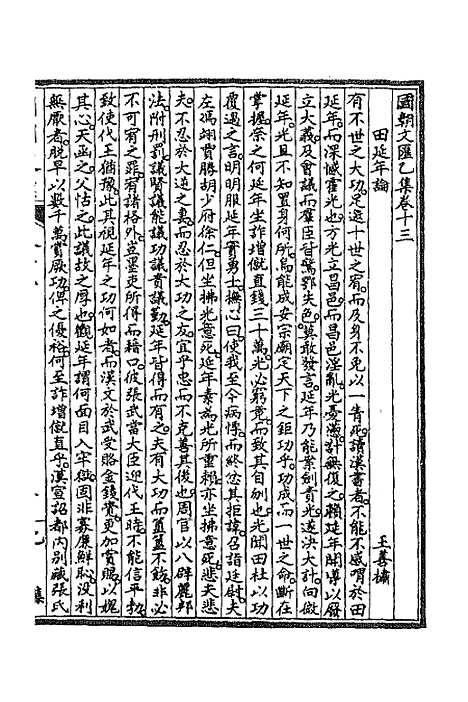 國朝文匯乙集卷十三
田延年論
王善橚
有不世之大功足邀十世之宥而及身不免以一眚死讀漢書者不能不感喟於田
延年而深憾霍光也方光立昌邑而昌邑淫亂光憂懣計無復之賴延年開導以廢
立大義及會議而羣臣皆驚鄂失色莫敢發言延年乃能案劍責光遂決大計向微
延年光且不知置身何所烏能成安宗廟定天下之鉅功乎功成而一世之命斷在
掌握奈之何延年坐詐增僦直錢三十萬光必窮竟而致其自刎也光聞田杜以功
覆過之言明明服延年實勇士撫心曰使我至今病悸而終忿其拒諱召詣廷尉夫
左馮翊賈勝胡少府徐仁但坐拂光意死延年素為光所重賴亦坐拂意死悲夫悲
夫不忍於大逆之妻而忍於大功之友宜乎忠而不克善其後也周官以八辟麗邦
法附刑罰議賢議能議功議貴議勤延年皆得而有之夫有大功而簠簋不飭非必
不可宥之罪宥諸格外豈墨吏所得而藉口彼張武當大臣迎代王時不能信平勃
致使代王猶豫此其視延年之功何如者而漢文於武受賂金錢覺更加賞賜以媿
其心天函之父怙之此議故之厚也觀延年謂何面目入牢獄固非寡廉鮮恥沒利
無厭者脫早以數千萬賞厥功俾之優裕何至詐增僦直乎漢宣詔都內別藏張氏